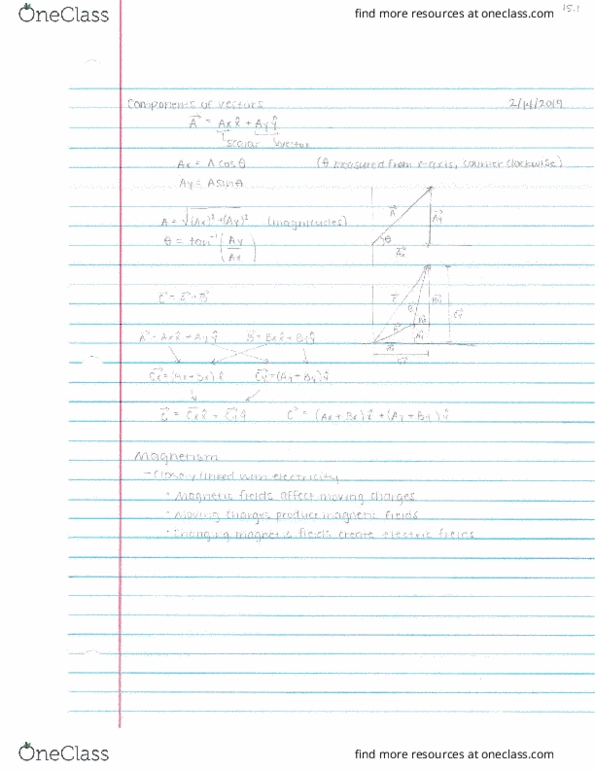 OneClass
find more resources at oneclass.com
15.1
Components of vectors 2/14/2019
A⃗ = Axx̂ + Ayŷ
scalar vector
Ax = A cosθ (θ measured from x-axis, counter clockwise)
Ay = A sinθ
A = √(Ax)² + (Ay)² (magnitudes)
θ = tan⁻¹(Ay/Ax)
A⃗ = Axx̂ + Ayŷ B⃗ = Bxx̂ + Byŷ
C⃗x = (Ax + Bx)x̂ C⃗y = (Ay + By)ŷ
C⃗ = (Ax + Bx)x̂ + (Ay + By)ŷ
Magnetism
- Closely linked with electricity
• Magnetic fields affect moving charges
• Moving charges product magnetic fields
• Changing magnetic fields create electric fields
OneClass
find more resources at oneclass.com